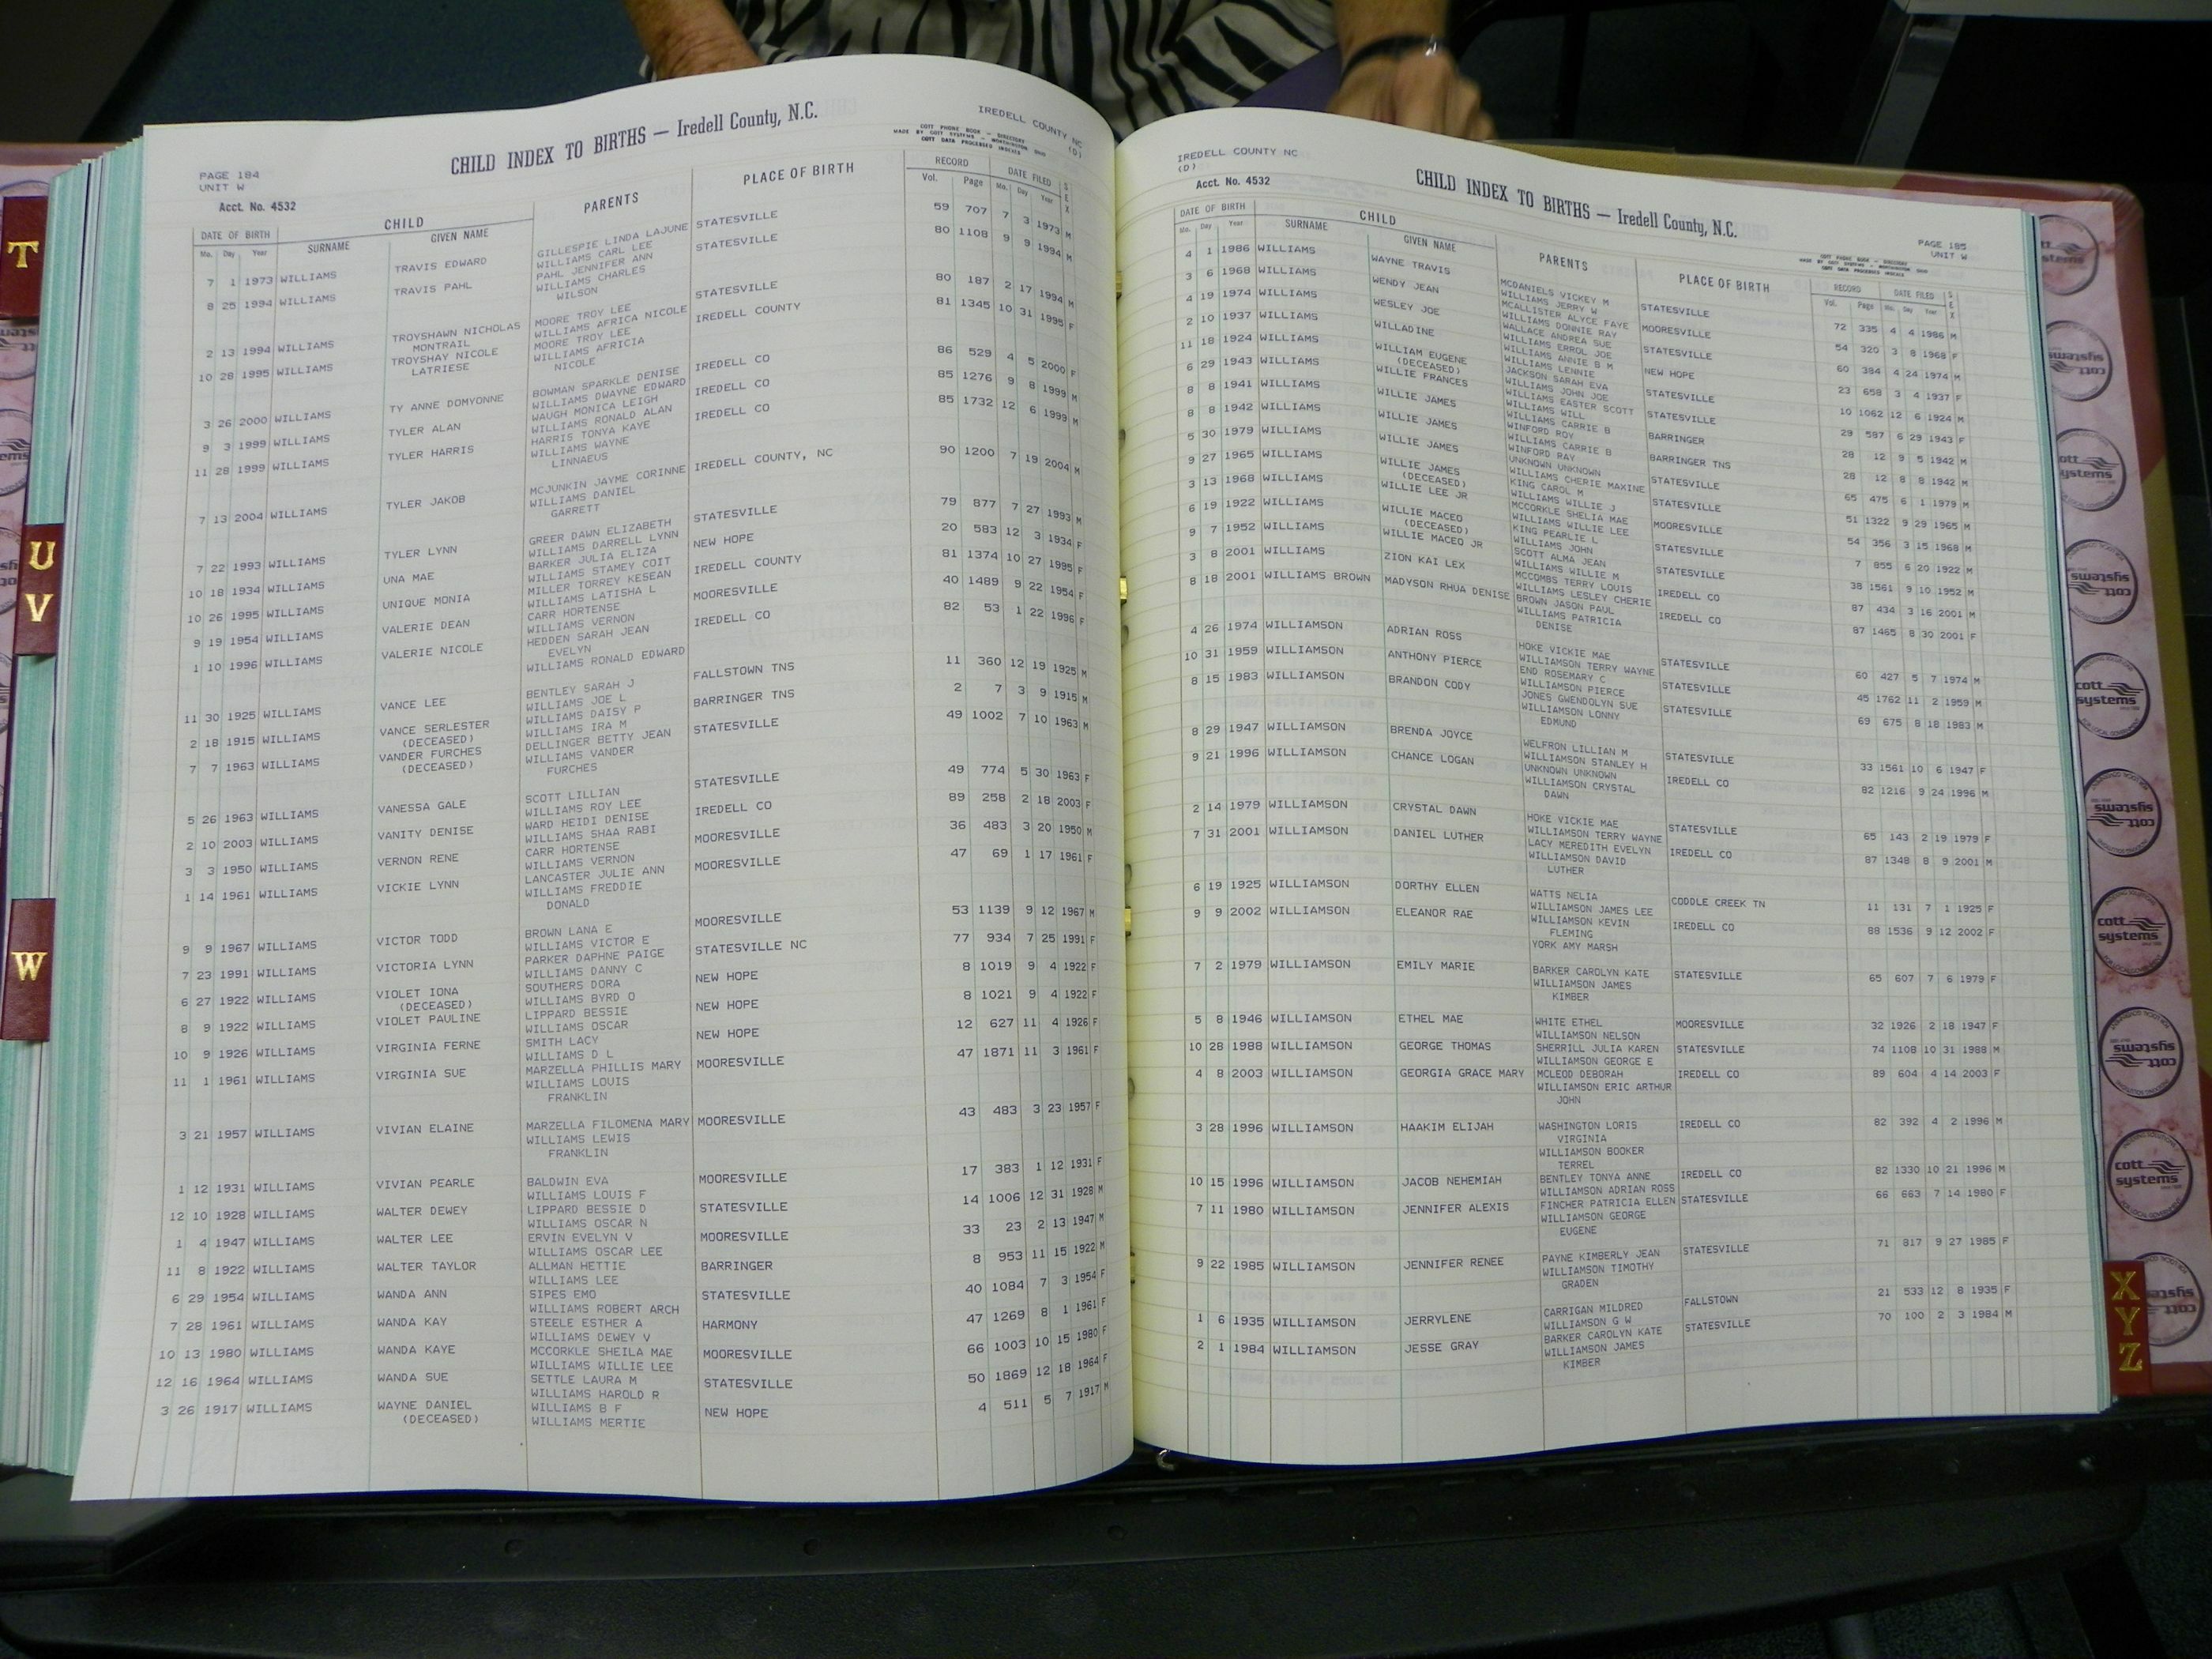 CHILD INDEX TO BIRTHS — Iredell County, N.C.
IREDELL COUNTY NC
(D)
COTT PHONE BOOK — DIRECTORY
MADE BY COTT SYSTEMS — WORTHINGTON, OHIO
COTT DATA PROCESSED INDEXES
PAGE 184
UNIT W
Acct. No. 4532
DATE OF BIRTH CHILD PARENTS PLACE OF BIRTH RECORD DATE FILED SEX
Mo. Day Year SURNAME GIVEN NAME Vol. Page Mo. Day Year
7 1 1973 WILLIAMS TRAVIS EDWARD GILLESPIE LINDA LAJUNE STATESVILLE 59 707 7 3 1973 M
WILLIAMS CARL LEE
8 25 1994 WILLIAMS TRAVIS PAHL PAHL JENNIFER ANN STATESVILLE 80 1108 9 9 1994 M
WILLIAMS CHARLES
WILSON
2 13 1994 WILLIAMS TROYSHAWN NICHOLAS MOORE TROY LEE STATESVILLE 80 187 2 17 1994 M
MONTRAIL WILLIAMS AFRICA NICOLE
10 28 1995 WILLIAMS TROYSHAY NICOLE MOORE TROY LEE IREDELL COUNTY 81 1345 10 31 1995 F
LATRIESE WILLIAMS AFRICIA
NICOLE
3 26 2000 WILLIAMS TY ANNE DOMYONNE BOWMAN SPARKLE DENISE IREDELL CO 86 529 4 5 2000 F
WILLIAMS DWAYNE EDWARD
9 3 1999 WILLIAMS TYLER ALAN WAUGH MONICA LEIGH IREDELL CO 85 1276 9 8 1999 M
WILLIAMS RONALD ALAN
11 28 1999 WILLIAMS TYLER HARRIS HARRIS TONYA KAYE IREDELL CO 85 1732 12 6 1999 M
WILLIAMS WAYNE
LINNAEUS
7 13 2004 WILLIAMS TYLER JAKOB MCJUNKIN JAYME CORINNE IREDELL COUNTY, NC 90 1200 7 19 2004 M
WILLIAMS DANIEL
GARRETT
7 22 1993 WILLIAMS TYLER LYNN GREER DAWN ELIZABETH STATESVILLE 79 877 7 27 1993 M
WILLIAMS DARRELL LYNN
10 18 1934 WILLIAMS UNA MAE BARKER JULIA ELIZA NEW HOPE 20 583 12 3 1934 F
WILLIAMS STAMEY COIT
10 26 1995 WILLIAMS UNIQUE MONIA MILLER TORREY KESEAN IREDELL COUNTY 81 1374 10 27 1995 F
WILLIAMS LATISHA L
9 19 1954 WILLIAMS VALERIE DEAN CARR HORTENSE MOORESVILLE 40 1489 9 22 1954 F
WILLIAMS VERNON
1 10 1996 WILLIAMS VALERIE NICOLE HEDDEN SARAH JEAN IREDELL CO 82 53 1 22 1996 F
EVELYN
WILLIAMS RONALD EDWARD
11 30 1925 WILLIAMS VANCE LEE BENTLEY SARAH J FALLSTOWN TNS 11 360 12 19 1925 M
WILLIAMS JOE L
2 18 1915 WILLIAMS VANCE SERLESTER WILLIAMS DAISY P BARRINGER TNS 2 7 3 9 1915 M
(DECEASED) WILLIAMS IRA M
7 7 1963 WILLIAMS VANDER FURCHES DELLINGER BETTY JEAN STATESVILLE 49 1002 7 10 1963 M
(DECEASED) WILLIAMS VANDER
FURCHES
5 26 1963 WILLIAMS VANESSA GALE SCOTT LILLIAN STATESVILLE 49 774 5 30 1963 F
WILLIAMS ROY LEE
2 10 2003 WILLIAMS VANITY DENISE WARD HEIDI DENISE IREDELL CO 89 258 2 18 2003 F
WILLIAMS SHAA RABI
3 3 1950 WILLIAMS VERNON RENE CARR HORTENSE MOORESVILLE 36 483 3 20 1950 M
WILLIAMS VERNON
1 14 1961 WILLIAMS VICKIE LYNN LANCASTER JULIE ANN MOORESVILLE 47 69 1 17 1961 F
WILLIAMS FREDDIE
DONALD
9 9 1967 WILLIAMS VICTOR TODD BROWN LANA E MOORESVILLE 53 1139 9 12 1967 M
WILLIAMS VICTOR E
7 23 1991 WILLIAMS VICTORIA LYNN PARKER DAPHNE PAIGE STATESVILLE NC 77 934 7 25 1991 F
WILLIAMS DANNY C
6 27 1922 WILLIAMS VIOLET IONA SOUTHERS DORA NEW HOPE 8 1019 9 4 1922 F
(DECEASED) WILLIAMS BYRD O
8 9 1922 WILLIAMS VIOLET PAULINE LIPPARD BESSIE NEW HOPE 8 1021 9 4 1922 F
WILLIAMS OSCAR
10 9 1926 WILLIAMS VIRGINIA FERNE SMITH LACY NEW HOPE 12 627 11 4 1926 F
WILLIAMS D L
11 1 1961 WILLIAMS VIRGINIA SUE MARZELLA PHILLIS MARY MOORESVILLE 47 1871 11 3 1961 F
WILLIAMS LOUIS
FRANKLIN
3 21 1957 WILLIAMS VIVIAN ELAINE MARZELLA FILOMENA MARY MOORESVILLE 43 483 3 23 1957 F
WILLIAMS LEWIS
FRANKLIN
1 12 1931 WILLIAMS VIVIAN PEARLE BALDWIN EVA MOORESVILLE 17 383 1 12 1931 F
WILLIAMS LOUIS F
12 10 1928 WILLIAMS WALTER DEWEY LIPPARD BESSIE D STATESVILLE 14 1006 12 31 1928 M
WILLIAMS OSCAR N
1 4 1947 WILLIAMS WALTER LEE ERVIN EVELYN V MOORESVILLE 33 23 2 13 1947 M
WILLIAMS OSCAR LEE
11 8 1922 WILLIAMS WALTER TAYLOR ALLMAN HETTIE BARRINGER 8 953 11 15 1922 M
WILLIAMS LEE
6 29 1954 WILLIAMS WANDA ANN SIPES EMO STATESVILLE 40 1084 7 3 1954 F
WILLIAMS ROBERT ARCH
7 28 1961 WILLIAMS WANDA KAY STEELE ESTHER A HARMONY 47 1269 8 1 1961 F
WILLIAMS DEWEY V
10 13 1980 WILLIAMS WANDA KAYE MCCORKLE SHEILA MAE MOORESVILLE 66 1003 10 15 1980 F
WILLIAMS WILLIE LEE
12 16 1964 WILLIAMS WANDA SUE SETTLE LAURA M STATESVILLE 50 1869 12 18 1964 F
WILLIAMS HAROLD R
3 26 1917 WILLIAMS WAYNE DANIEL WILLIAMS B F NEW HOPE 4 511 5 7 1917 M
(DECEASED) WILLIAMS MERTIE
IREDELL COUNTY NC
(D)
Acct. No. 4532
CHILD INDEX TO BIRTHS — Iredell County, N.C.
PAGE 185
UNIT W
COTT PHONE BOOK — DIRECTORY
MADE BY COTT SYSTEMS — WORTHINGTON, OHIO
COTT DATA PROCESSED INDEXES
DATE OF BIRTH CHILD PARENTS PLACE OF BIRTH RECORD DATE FILED SEX
Mo. Day Year SURNAME GIVEN NAME Vol. Page Mo. Day Year
4 1 1986 WILLIAMS WAYNE TRAVIS MCDANIELS VICKEY M STATESVILLE 72 335 4 4 1986 M
WILLIAMS JERRY W
3 6 1968 WILLIAMS WENDY JEAN MCALLISTER ALYCE FAYE MOORESVILLE 54 320 3 8 1968 F
WILLIAMS DONNIE RAY
4 19 1974 WILLIAMS WESLEY JOE WALLACE ANDREA SUE STATESVILLE 60 384 4 24 1974 M
WILLIAMS ERROL JOE
2 10 1937 WILLIAMS WILLADINE WILLIAMS ANNIE B M NEW HOPE 23 658 3 4 1937 F
WILLIAMS LENNIE
11 18 1924 WILLIAMS WILLIAM EUGENE JACKSON SARAH EVA STATESVILLE 10 1062 12 6 1924 M
(DECEASED) WILLIAMS JOHN JOE
6 29 1943 WILLIAMS WILLIE FRANCES WILLIAMS EASTER SCOTT STATESVILLE 29 587 6 29 1943 F
WILLIAMS WILL
8 8 1941 WILLIAMS WILLIE JAMES WILLIAMS CARRIE B BARRINGER 28 12 9 5 1942 M
WINFORD ROY
8 8 1942 WILLIAMS WILLIE JAMES WILLIAMS CARRIE B BARRINGER TNS 28 12 8 8 1942 M
WINFORD RAY
5 30 1979 WILLIAMS WILLIE JAMES UNKNOWN UNKNOWN STATESVILLE 65 475 6 1 1979 M
WILLIAMS CHERIE MAXINE
9 27 1965 WILLIAMS WILLIE JAMES KING CAROL M MOORESVILLE 51 1322 9 29 1965 M
(DECEASED) WILLIAMS WILLIE J
3 13 1968 WILLIAMS WILLIE LEE JR MCCORKLE SHELIA MAE STATESVILLE 54 356 3 15 1968 M
WILLIAMS WILLIE LEE
6 19 1922 WILLIAMS WILLIE MACEO KING PEARLIE L STATESVILLE 7 855 6 20 1922 M
(DECEASED) WILLIAMS JOHN
9 7 1952 WILLIAMS WILLIE MACEO JR SCOTT ALMA JEAN STATESVILLE 38 1561 9 10 1952 M
WILLIAMS WILLIE M
3 8 2001 WILLIAMS ZION KAI LEX MCCOMBS TERRY LOUIS IREDELL CO 87 434 3 16 2001 M
WILLIAMS LESLEY CHERIE
8 18 2001 WILLIAMS BROWN MADYSON RHUA DENISE BROWN JASON PAUL IREDELL CO 87 1465 8 30 2001 F
WILLIAMS PATRICIA
DENISE
4 26 1974 WILLIAMSON ADRIAN ROSS HOKE VICKIE MAE STATESVILLE 60 427 5 7 1974 M
WILLIAMSON TERRY WAYNE
10 31 1959 WILLIAMSON ANTHONY PIERCE END ROSEMARY C STATESVILLE 45 1762 11 2 1959 M
WILLIAMSON PIERCE
8 15 1983 WILLIAMSON BRANDON CODY JONES GWENDOLYN SUE STATESVILLE 69 675 8 18 1983 M
WILLIAMSON LONNY
EDMUND
8 29 1947 WILLIAMSON BRENDA JOYCE WELFRON LILLIAN M STATESVILLE 33 1561 10 6 1947 F
WILLIAMSON STANLEY H
9 21 1996 WILLIAMSON CHANCE LOGAN UNKNOWN UNKNOWN IREDELL CO 82 1216 9 24 1996 M
WILLIAMSON CRYSTAL
DAWN
2 14 1979 WILLIAMSON CRYSTAL DAWN HOKE VICKIE MAE STATESVILLE 65 143 2 19 1979 F
WILLIAMSON TERRY WAYNE
7 31 2001 WILLIAMSON DANIEL LUTHER LACY MEREDITH EVELYN IREDELL CO 87 1348 8 9 2001 M
WILLIAMSON DAVID
LUTHER
6 19 1925 WILLIAMSON DORTHY ELLEN WATTS NELIA CODDLE CREEK TN 11 131 7 1 1925 F
WILLIAMSON JAMES LEE
9 9 2002 WILLIAMSON ELEANOR RAE WILLIAMSON KEVIN IREDELL CO 88 1536 9 12 2002 F
FLEMING
YORK AMY MARSH
7 2 1979 WILLIAMSON EMILY MARIE BARKER CAROLYN KATE STATESVILLE 65 607 7 6 1979 F
WILLIAMSON JAMES
KIMBER
5 8 1946 WILLIAMSON ETHEL MAE WHITE ETHEL MOORESVILLE 32 1926 2 18 1947 F
WILLIAMSON NELSON
10 28 1988 WILLIAMSON GEORGE THOMAS SHERRILL JULIA KAREN STATESVILLE 74 1108 10 31 1988 M
WILLIAMSON GEORGE E
4 8 2003 WILLIAMSON GEORGIA GRACE MARY MCLEOD DEBORAH IREDELL CO 89 604 4 14 2003 F
WILLIAMSON ERIC ARTHUR
JOHN
3 28 1996 WILLIAMSON HAAKIM ELIJAH WASHINGTON LORIS IREDELL CO 82 392 4 2 1996 M
VIRGINIA
WILLIAMSON BOOKER
TERREL
10 15 1996 WILLIAMSON JACOB NEHEMIAH BENTLEY TONYA ANNE IREDELL CO 82 1330 10 21 1996 M
WILLIAMSON ADRIAN ROSS
7 11 1980 WILLIAMSON JENNIFER ALEXIS FINCHER PATRICIA ELLEN STATESVILLE 66 663 7 14 1980 F
WILLIAMSON GEORGE
EUGENE
9 22 1985 WILLIAMSON JENNIFER RENEE PAYNE KIMBERLY JEAN STATESVILLE 71 817 9 27 1985 F
WILLIAMSON TIMOTHY
GRADEN
1 6 1935 WILLIAMSON JERRYLENE CARRIGAN MILDRED FALLSTOWN 21 533 12 8 1935 F
WILLIAMSON G W
2 1 1984 WILLIAMSON JESSE GRAY BARKER CAROLYN KATE STATESVILLE 70 100 2 3 1984 M
WILLIAMSON JAMES
KIMBER
T
U
V
W
X
Y
Z
cott
systems